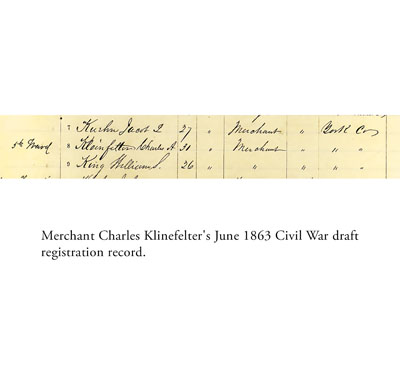 7 Kurhn Jacob L 27 " Merchant " York Co
5th Ward 8 Kleinfelter Charles A 31 " Merchant " " "
9 King William S. 26 " " " " "
Merchant Charles Klinefelter's June 1863 Civil War draft
registration record.